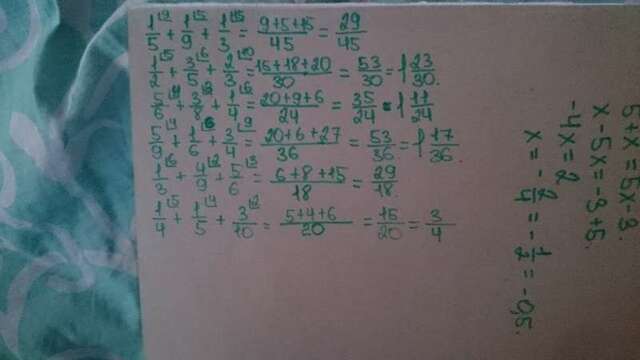 1/5 + 1/9 + 1/3 = (9+5+15)/45 = 29/45
1/2 + 3/5 + 2/3 = (15+18+20)/30 = 53/30 = 1 23/30.
5/6 + 3/8 + 1/4 = (20+9+6)/24 = 35/24 = 1 11/24
5/9 + 1/6 + 3/4 = (20+6+27)/36 = 53/36 = 1 17/36.
1/3 + 4/9 + 5/6 = (6+8+15)/18 = 29/18.
1/4 + 1/5 + 3/10 = (5+4+6)/20 = 15/20 = 3/4
5+x=5x-3.
x-5x=-3+5
-4x=2
x=-2/4=-1/2=-0,5.